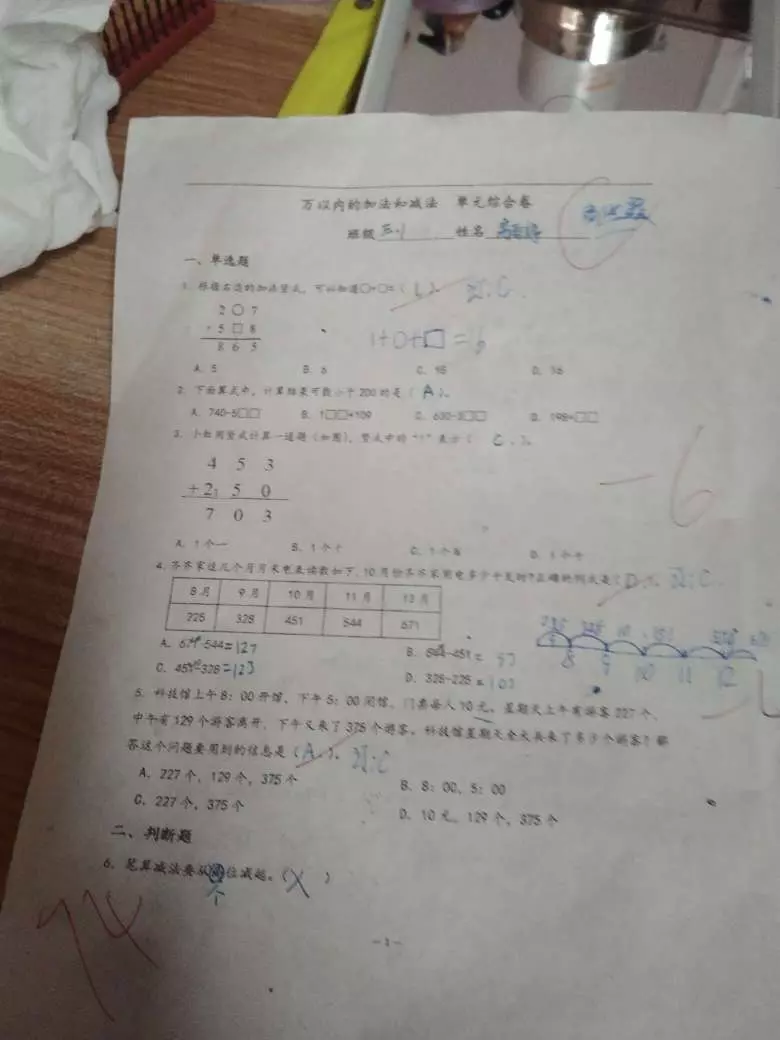 万以内的加法和减法 单元综合卷
班级 三.1 姓名
一、单选题
1. 根据右边的加法竖式,可以知道○+□=( )。 订:C.
2 ○ 7
+ 5 □ 8
8 6 5
1+○+□=6
A. 5 B. 6 C. 15 D. 16
2. 下面算式中,计算结果可能小于 200 的是( A )。
A. 740-5□□ B. 1□□+109 C. 630-3□□ D. 198+□□
3. 小红用竖式计算一道题(如图),竖式中的“1”表示( C )。
4 5 3
+ 2₁ 5 0
7 0 3
-6
A. 1 个一 B. 1 个十 C. 1 个百 D. 1 个千
4. 齐齐家这几个月月末电表读数如下,10 月份齐齐家用电多少千瓦时?正确的列式是( D )。 订:C.
8 月 9 月 10 月 11 月 12 月
225 328 451 544 671
A. 671-544=127 B. 544-451= 93
C. 451-328=123 D. 328-225=103
8 9 10 11 12
5. 科技馆上午 8:00 开馆,下午 5:00 闭馆,门票每人 10 元。星期天上午有游客 227 个,
中午有 129 个游客离开,下午又来了 375 个游客。科技馆星期天全天共来了多少个游客?解
答这个问题要用到的信息是( A )。 订:C
A. 227 个,129 个,375 个 B. 8:00、5:00
C. 227 个,375 个 D. 10 元,129 个,375 个
二、判断题
6. 笔算减法要从高位减起。( X )
个
94
-1-